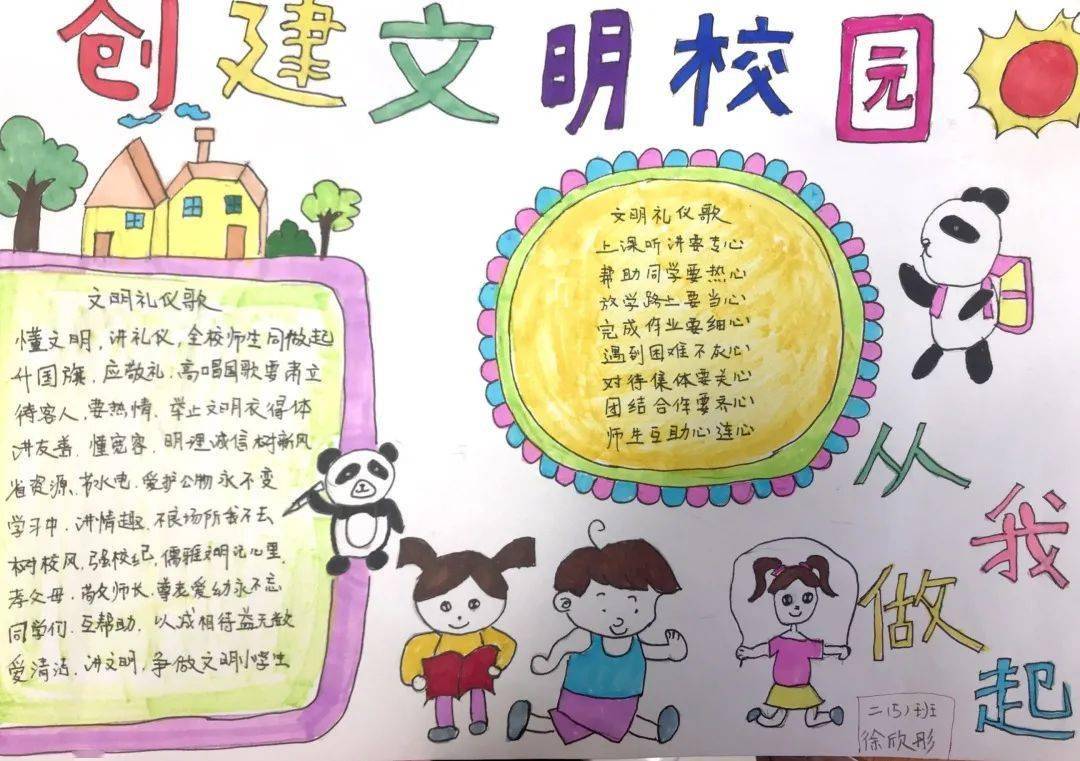 创建文明校园
文明礼仪歌
懂文明，讲礼仪，全校师生同做起
升国旗，应敬礼，高唱国歌要肃立
待客人，要热情，举止文明衣得体
讲友善，懂宽容，明理诚信树新风
省资源，节水电，爱护公物永不变
学习中，讲情趣，不良场所我不去
树校风，强校纪，儒雅文明记心里，
孝父母，敬师长，尊老爱幼永不忘
同学们，互帮助，以诚相待益无数
爱清洁，讲文明，争做文明小学生
文明礼仪歌
上课听讲要专心
帮助同学要热心
放学路上要当心
完成作业要细心
遇到困难不灰心
对待集体要关心
团结合作要齐心
师生互助心连心
从我做起
二（5）班
徐欣彤